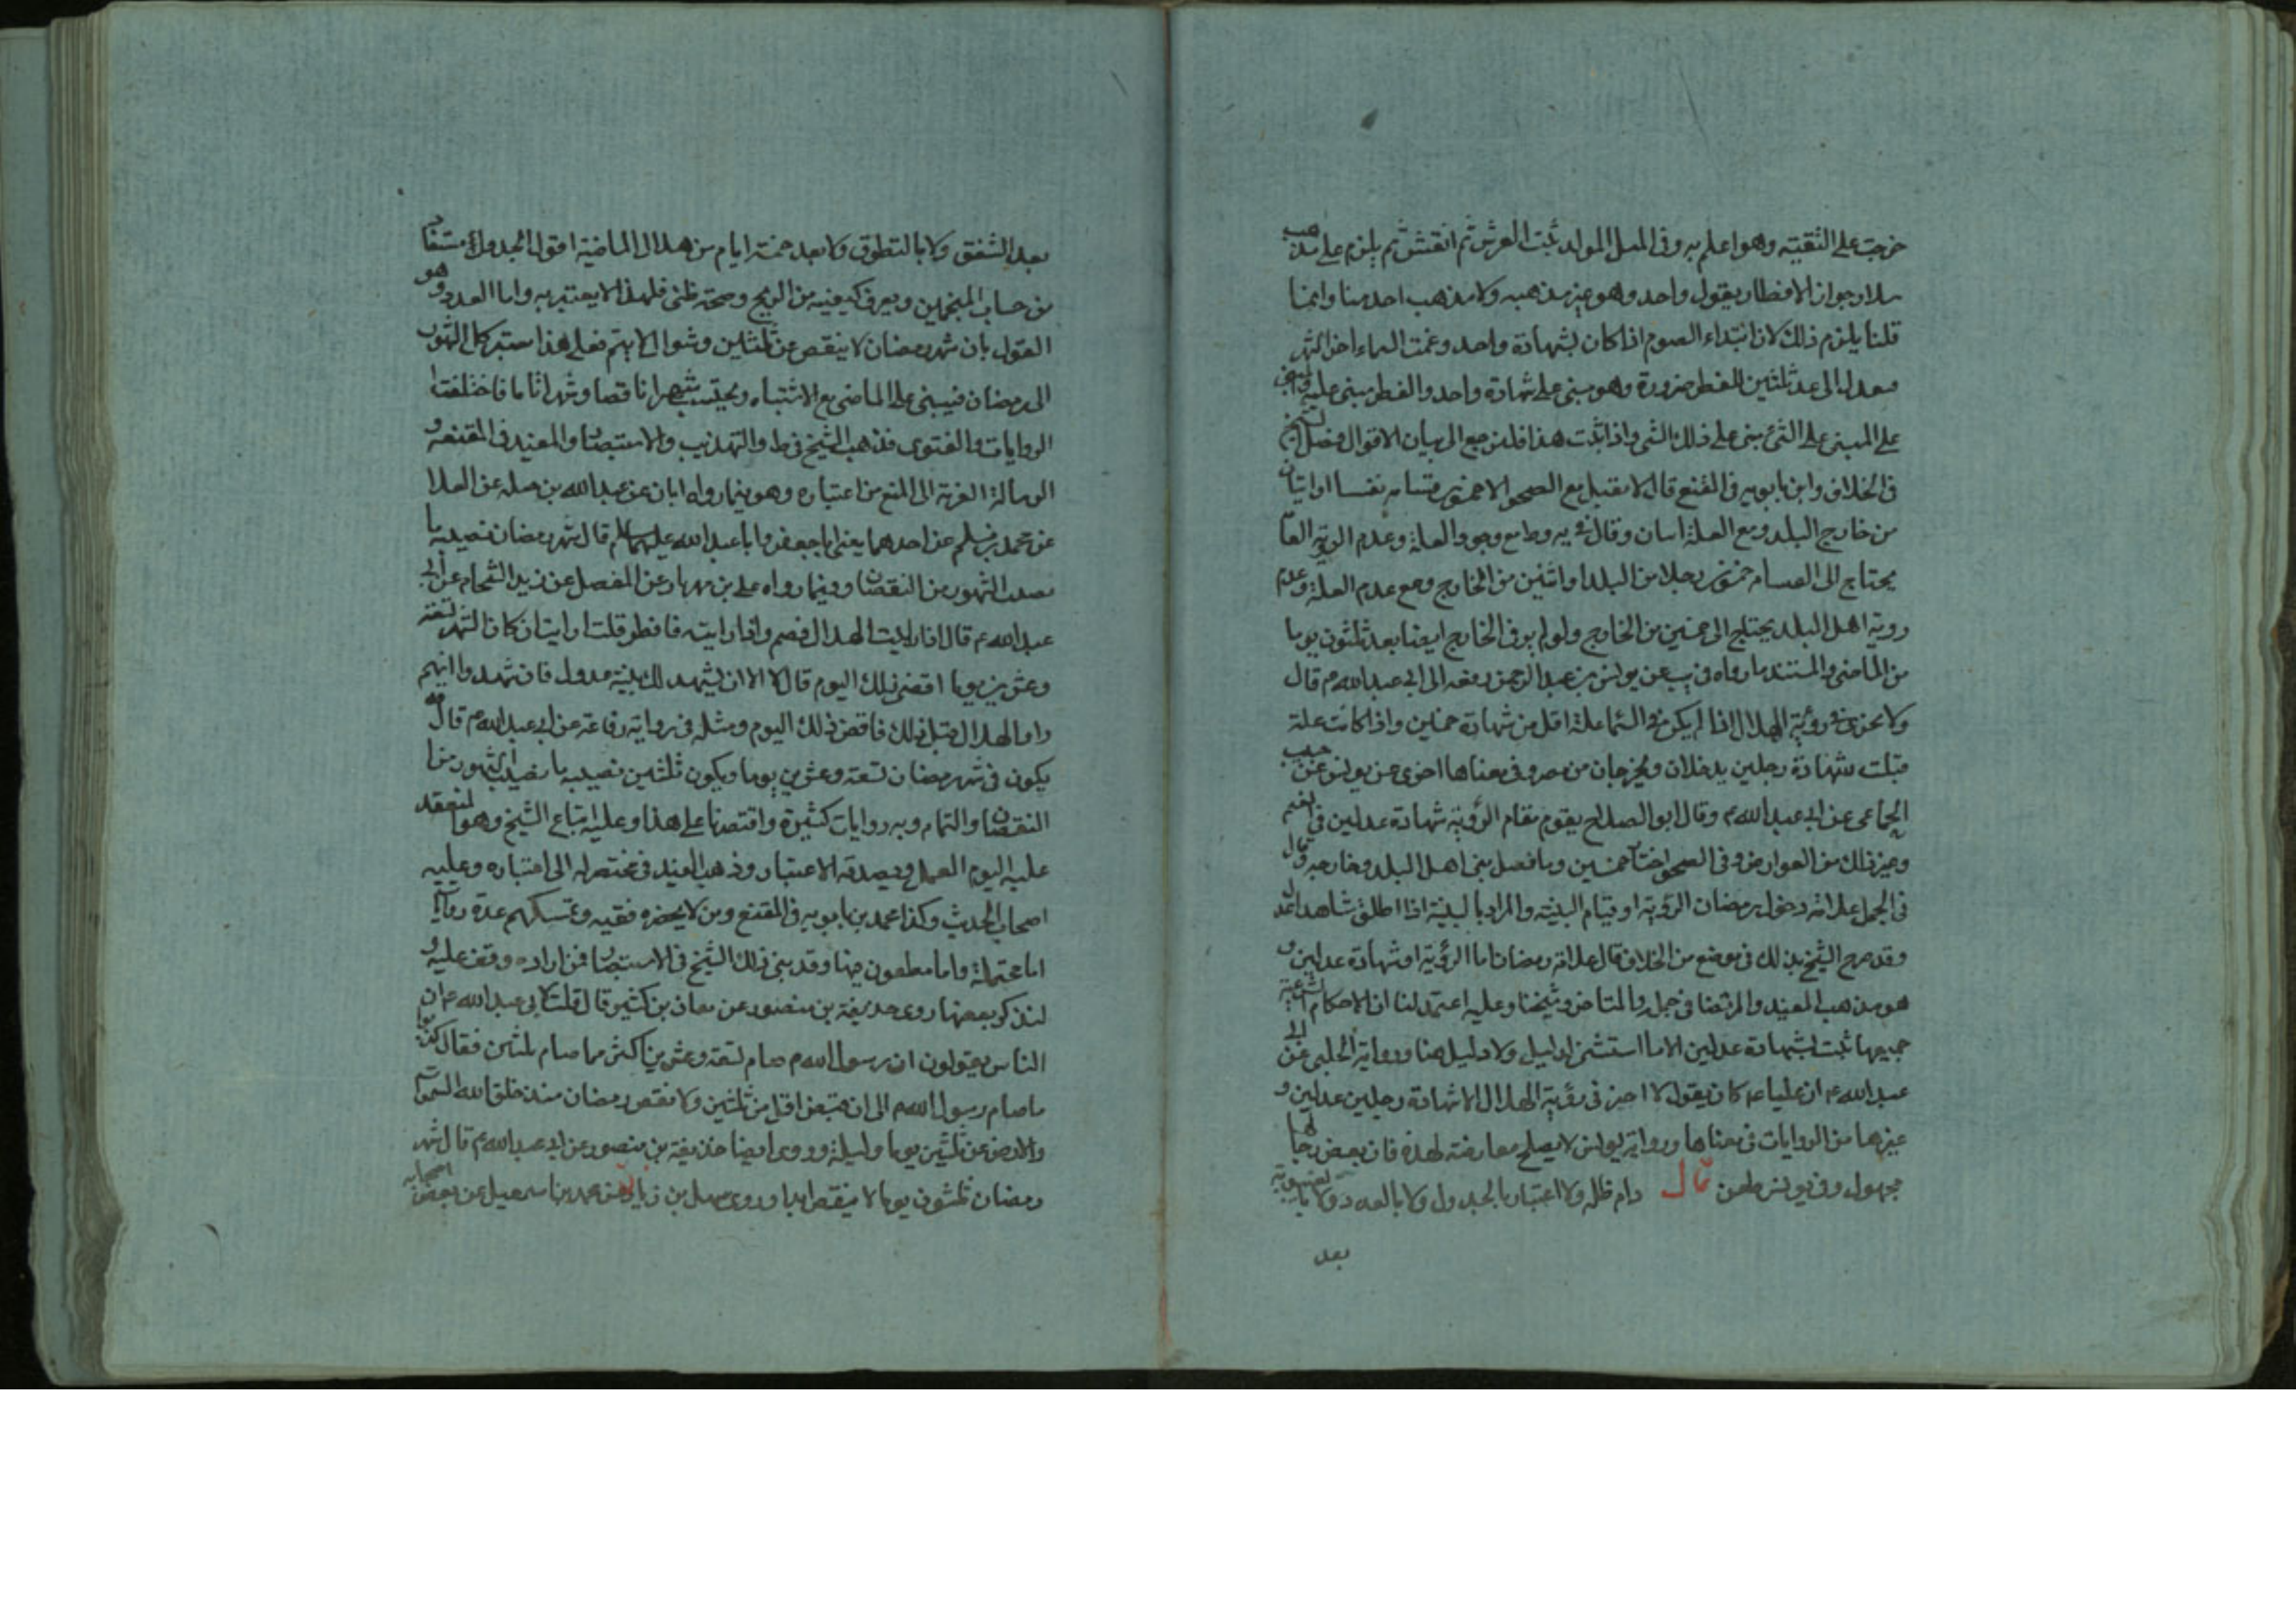 خرجت على التقية وهو اعلم به وفى المثل المولد ثبت العرش ثم انقش ثم يلزم على مذهب
سلار جواز الافطار بقول واحد وهو غير مذهبه ولا مذهب احد منا وانما
قلنا يلزم ذلك لان ابتداء الصوم اذا كان بشهادة واحد وغمت السماء اخر الشهر
فعدل الى عد ثلثين للفطر ضرورة وهو مبنى على شهادة واحد والفطر مبنى عليه والمبنى
على المبنى على الشئ مبنى على ذلك الشى واذا ثبت هذا فلنرجع الى بيان الاقوال فصل الشيخ
فى الخلاف وابن بابويه فى المقنع قال لا يقبل مع الصحو الا خمسون قسامة نفسا او اثنان
من خارج البلد ومع العلة اثنان وقال فى يه وط مع وجود العلة وعدم الروية العا
يحتاج الى القسامه خمسون رجلا من البلد او اثنين من الخارج ومع عدم العلة وعدم
روية اهل البلد يحتاج الى خمسين من الخارج ولو لم ير فى الخارج ايضا يعد ثلثون يوما
من الماضى والمستند ما رواه فى يب عن يونس بن عبد الرحمن رفعه الى ابى عبد الله م قال
ولا يجزى فى روئية الهلال اذا لم يكن فى السما علة اقل من شهادة خمسين واذا كانت علة
قبلت شهادة رجلين يدخلان ويخرجان من مصر وفى معناها اخرى عن يونس عن حبيب
الجماعى عن ابى عبد الله م وقال ابو الصلاح يقوم مقام الرؤية شهادة عدلين فى الغيم
وغير ذلك من العوارض وفى الصحو اخبار خمسين وما فصل بنى اهل البلد وخارجه وقال
فى الجمل علامة دخول رمضان الرؤية او قيام البينه والمراد بالبينة اذا اطلق شاهدا عدل
وقد صرح الشيخ بذلك فى موضع من الخلاف قال علامة رمضان اما الرؤية او شهادة عدلين و
هو مذهب المفيد والمرتضا فى جمله والمتاخر وشيخنا وعليه اعتمد لنا ان الاحكام الشرعية
جميعها ثبت بشهادة عدلين الا ما استثنى لدليل ولا دليل هنا ورواية الحلبى عن ابى
عبد الله م ان عليا م كان يقول لا اجيز فى رؤية الهلال الا شهادة رجلين عدلين و
غيرها من الروايات فى معناها ورواية يونس لا يصلح معارضة لهذه فان بعض رجالها
مجهول وفى يونس طعن قال دام ظله ولا اعتبار بالجدول ولا بالعدد ولا بالغيبوبة
بعد
بعد الشفق ولا بالتطوق ولا بعد خمسة ايام من هلال الماضية اقول الجدول مستفاد
من حساب المنجمين ويعرف كيفيته من الزيج وصحته ظنى فلهذا لا يعتبر به واما العدد وهو
القول بان شهر رمضان لا ينقص عن ثلثين وشوال لا يتم فعلى هذا معتبر كل الشهور
الى رمضان فيبنى على الماضى مع الاشتباه ويحتسب شهرا ناقصا وشهرا تاما فاختلفت
الروايات والفتوى فذهب الشيخ فى ط والتهذيب والاستبصار والمفيد فى المقنعه و
الرسالة الغرية الى المنع من اعتباره وهو فيما رواه ابان عن عبد الله بن جبلة عن العلا
عن محمد بن مسلم عن احدهما يعنى ابا جعفر وابا عبد الله عليهما السلم قال شهر رمضان تصيبه ما
تصيب الشهور من النقصان وفيما رواه على بن مهزيار عن المفصل عن زيد الشحام عن ابى
عبد الله م قال اذا رايت الهلال فصم واذا رايته فافطر قلت ارايت ان كان الشهر تسعة
وعشرين يوما اقضى ذلك اليوم قال لا الا ان يشهد لك بينة عدول فان شهدوا انهم
راوا الهلال قبل ذلك فاقض ذلك اليوم ومثله فى رواية رفاعة عن ابى عبد الله م قال
يكون فى شهر رمضان تسعة وعشرين يوما ويكون ثلثين تصيبه ما تصيب الشهور من
النقصان والتمام وبه روايات كثيرة واقتصرنا على هذا وعليه اتباع الشيخ وهو المنعقد
عليه اليوم العمل ويصدقه الاعتبار وذهب المفيد فى مختصر له الى اعتباره وعليه
اصحاب الحديث وكذا محمد بن بابويه فى المقنع ومن لا يحضره فقيه وتمسكهم عدة روايات
اما محتملة واما مطعون فيها وقد بنى ذلك الشيخ فى الاستبصار فمن اراده وقف عليه و
لنذكر بعضها روى حذيفة بن منصور عن معاذ بن كثير قال قلت لابى عبد الله م ان
الناس يقولون ان رسول الله م صام تسعة وعشرين اكثر مما صام ثلثين فقال كذبوا
ما صام رسول الله م الى ان قبض اقل من ثلثين ولا نقص رمضان منذ خلق الله السموات
والارض عن ثلثين يوما وليلة وروى ايضا حذيفة بن منصور عن ابى عبد الله م قال شهر
رمضان ثلثون يوما لا ينقص ابدا وروى سهل بن زياد عن محمد بن اسمعيل عن بعض اصحابه